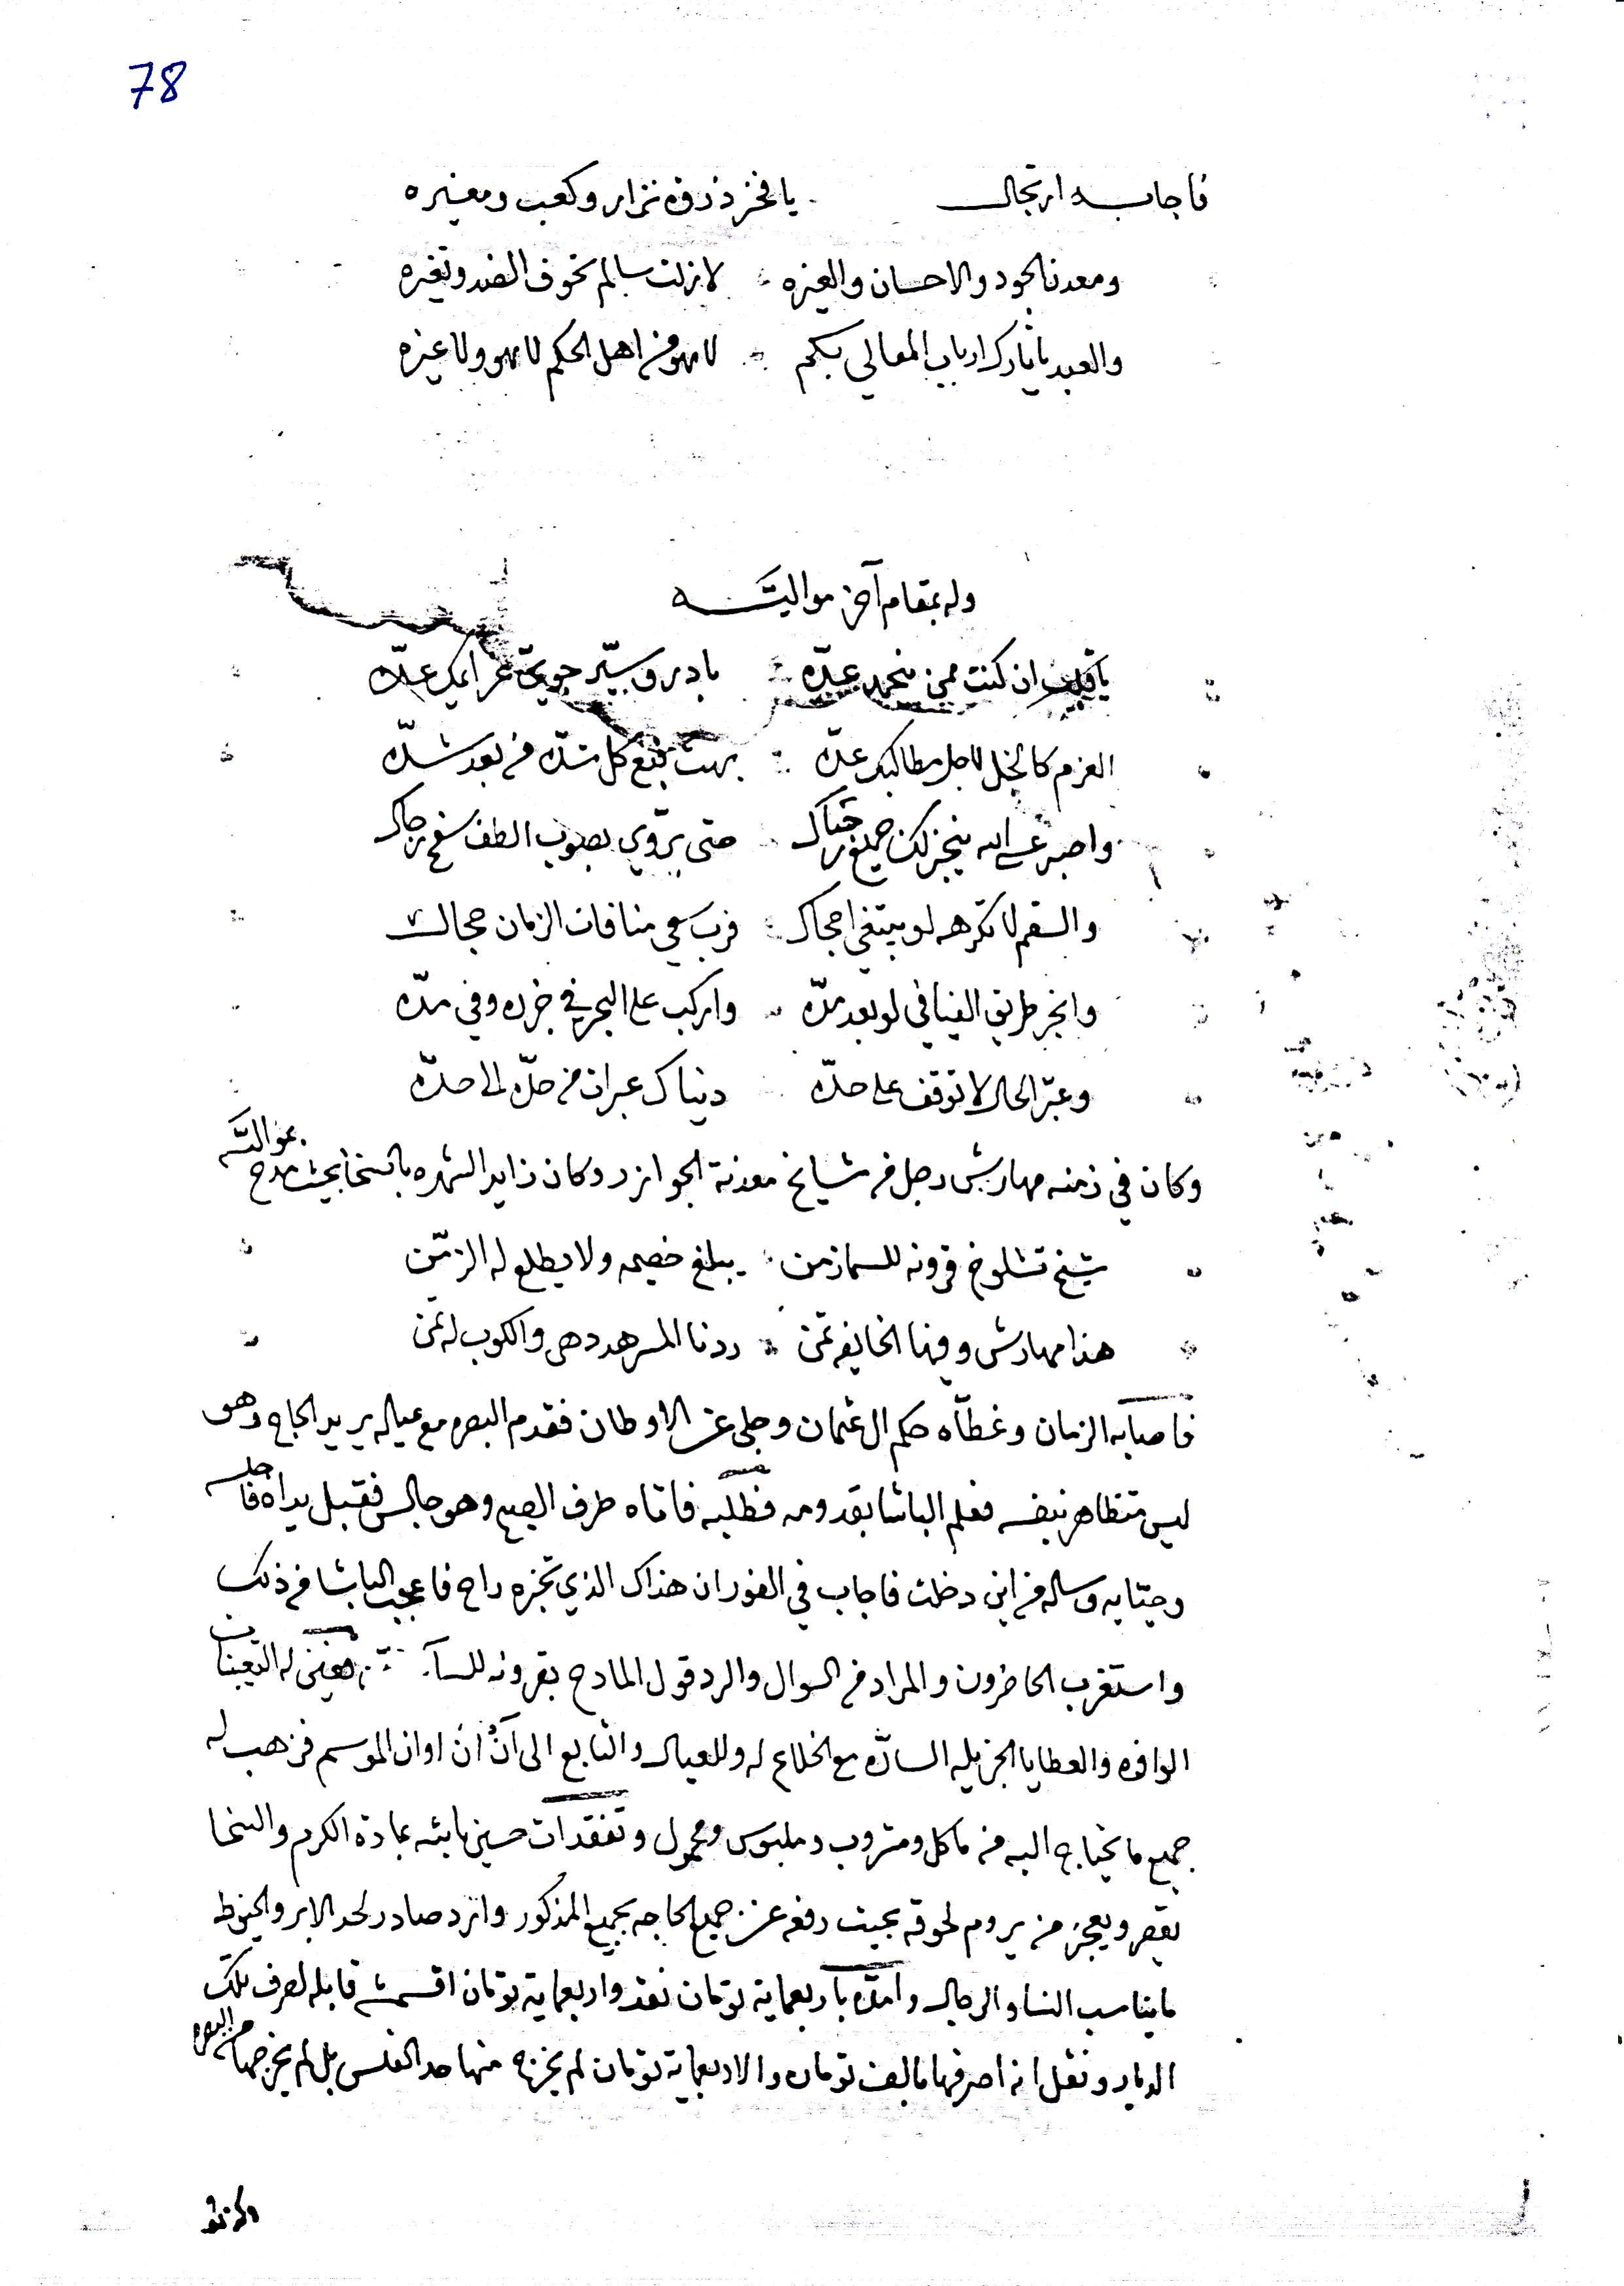 78
فاجابه ارتجال يا فخر ذروة نزار وكعب ومغيره
ومعدن الجود والاحسان والغيره لازلت سالم بخوف الضد وتغيره
والعبد يا تارك ارباب المعالي بكم لا هو من اهل الحكم لا هو ولا غيره
وله بمقام آخر مواليه
يا قلب ان كنت ممن ينحمد عدّه بادر وسيّر عن ايمك عدّه
العزم كالخل لاجل مطالبك عدّه بهت كل شدّه من بعد شدّه
واصبر عسى الله ينجز لك جميع حتى يرّوي بصوب الطف سفح رجاك
والسقم لا تكرهه لو يبتغي احجاك فرب سعي منافات الزمان حجاك
وانحر طريق الفيافي لو بعد مدّه واركب على البحر في جزره وفي مدّه
وعبّر الحال لا توقف على حدّه دنياك عبران من حدّه الى حدّه
وكان في زمنه مهارش رجل من مشايخ معدنة الجوازر وكان زايد الشهره بالسخا بحيث مدح
بمواليّه
شيخ تشلوخ قرونه للسما زمن يبلغ خصيمه ولا يطلع له الزمّن
هذا مهارش وفيها الخايفه تمن ردنا المسرهد دهى والكوب له ثمن
فاصابه الزمان وغطّاه حكم ال عثمان وجلى عن الاوطان فقدم البصره مع عياله يريد الحاج وهو
ليس متظاهر بنفسه فعلم الباشا بقدومه فطلبه فاتاه طرف الصبح وهو جالس فقبل يداه فاجلسه
وحيّايه وساله من اين دخلت فاجاب في الفور ان هذاك الذي تخبره راح فاعجب الباشا من ذلك
واستغرب الحاضرون والمراد من السوال والرد قول المادح بقرونه للسما فعيّن له التعينات
الوافره والعطايا الجزيله السارّه مع الخلاع له وللعيال والتابع الى آن ان اوان الموسم فذهب له
جميع ما يحتاج اليه من ماكل ومشروب وملبوس ومحمول وتفقدات حسين باشه بمادة الكرم والسخا
يقصر ويعجز من يروم لحوقه بحيث رفعه عن جميع الحاجه بجميع المذكور وازيد صادر لحد الابر والخيوط
ما يناسب النسا والرجال وامدّه باربعماية تومان نقد واربعماية تومان اقمشه قابله لصرف تلك
الديار ونقل انه اصرفها بالف تومان والاربعماية تومان لم يخرج منها حد الفلس بل لم يخرجها من البصره